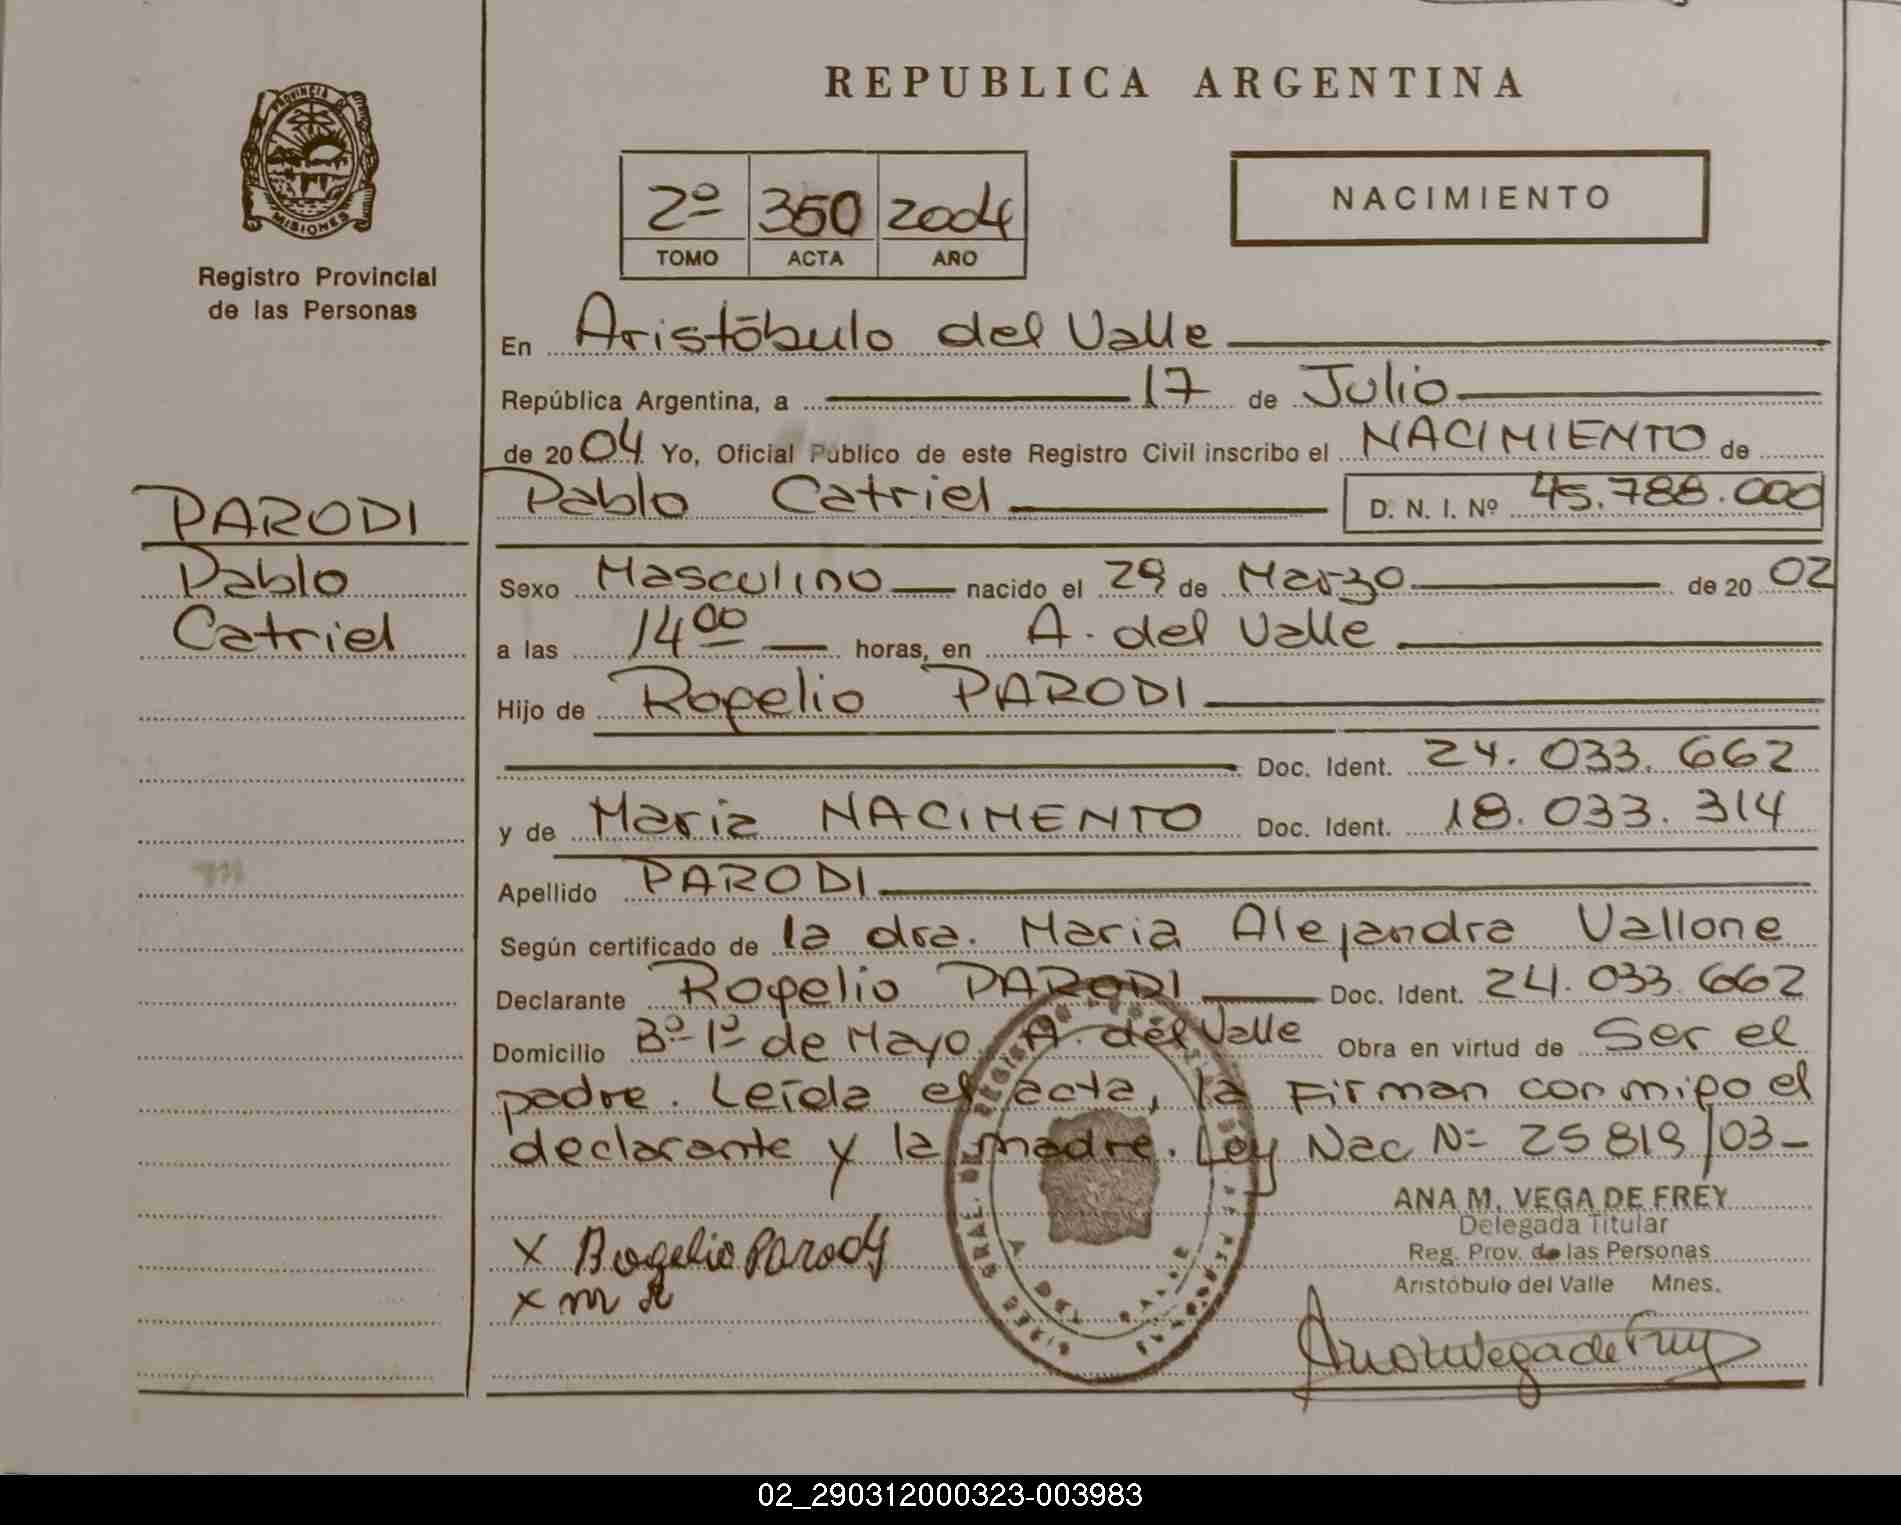 REPUBLICA ARGENTINA
PROVINCIA DE
MISIONES
Registro Provincial
de las Personas
2º 350 2004
TOMO ACTA AÑO
NACIMIENTO
En Aristóbulo del Valle
República Argentina, a 17 de Julio
de 2004 Yo, Oficial Público de este Registro Civil inscribo el NACIMIENTO de
Pablo Catriel D. N. I. Nº 45.788.000
PARODI
Pablo
Catriel
Sexo Masculino nacido el 29 de Marzo de 2002
a las 14 00 horas, en A. del Valle
Hijo de Rogelio PARODI
Doc. Ident. 24.033.662
y de Maria NACIMENTO Doc. Ident. 18.033.314
Apellido PARODI
Según certificado de la dra. Maria Alejandra Vallone
Declarante Rogelio PARODI Doc. Ident. 24.033.662
Domicilio Bº 1º de Mayo A. del Valle Obra en virtud de Ser el
padre. Leída el acta, la Firman conmigo el
declarante y la madre. Ley Nac Nº 25819/03-
ANA M. VEGA DE FREY
Delegada Titular
Reg. Prov. de las Personas
Aristóbulo del Valle Mnes.
x Rogelio Parody
x m
A DEL VALLE
02_290312000323-003983